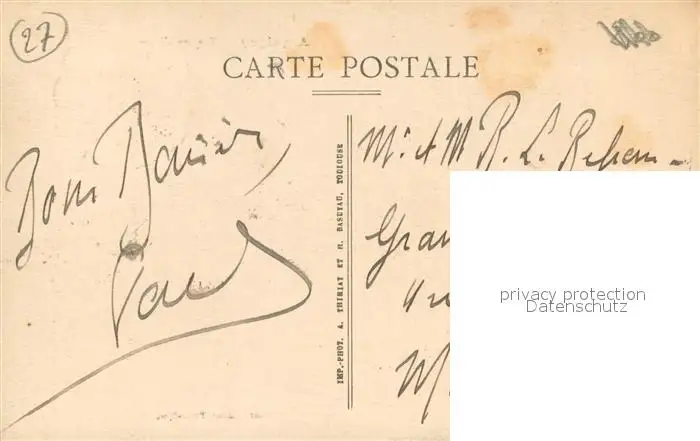 27
CARTE POSTALE
Bons Baisers,
Paul
IMP.-PHOT. A. THIRIAT ET H. BASUYAU, TOULOUSE
Mr et M R. Le
Gran
privacy protection
Datenschutz